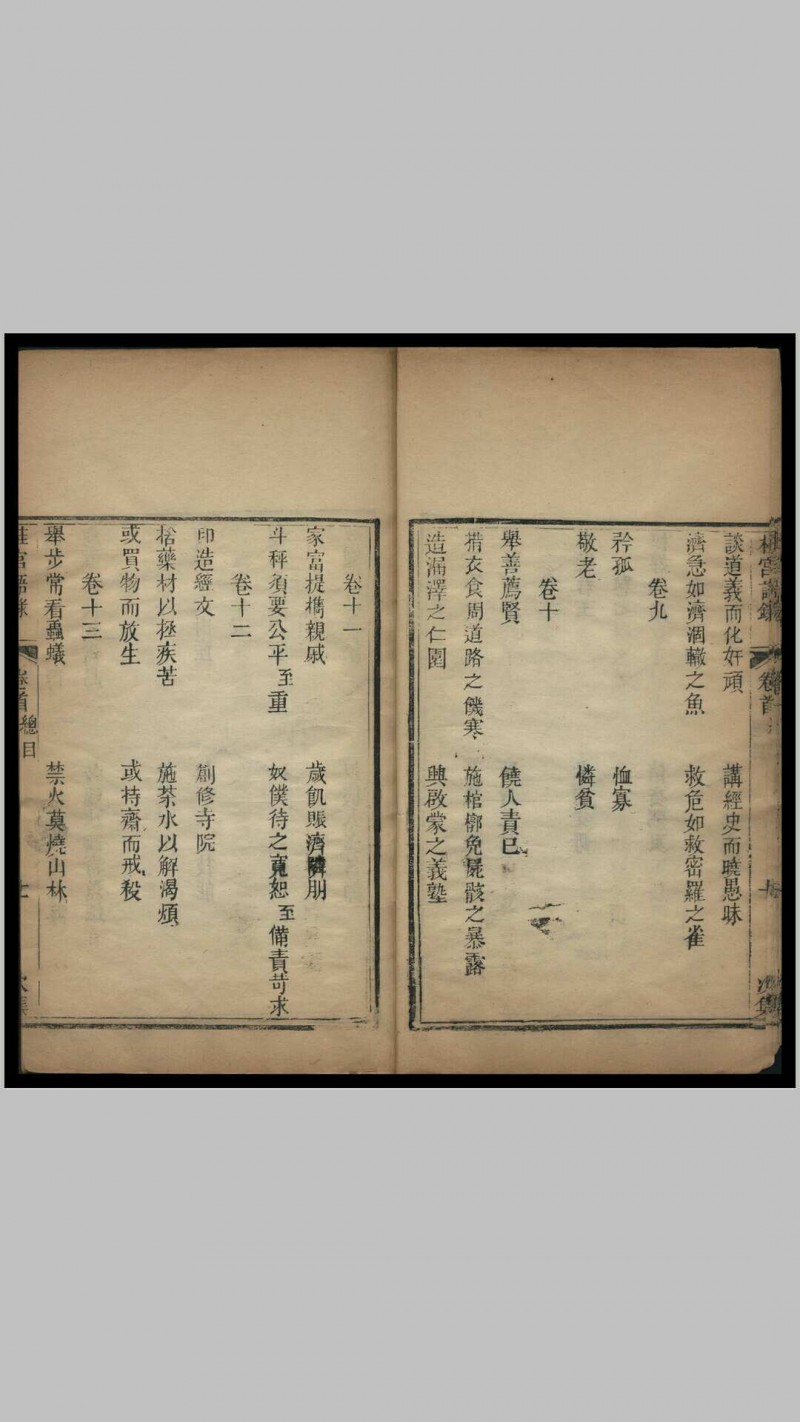 談道義而化奸頑　講經史而曉愚昧
濟急如濟涸轍之魚　救危如救密羅之雀
卷九
矜孤　恤寡
敬老　憐貧
卷十
舉善薦賢　饒人責已
措衣食周道路之饑寒　施棺槨免屍骸之暴露
造漏澤之仁園　興啟蒙之義塾
卷十一
家富提攜親戚　歲飢賑濟鄰朋
斗秤須要公平至重　奴僕待之寬恕至備責苛求
卷十二
印造經文　創修寺院
捨藥材以拯疾苦　施茶水以解渴煩
或買物而放生　或持齋而戒殺
卷十三
舉步常看蟲蟻　禁火莫燒山林
總目